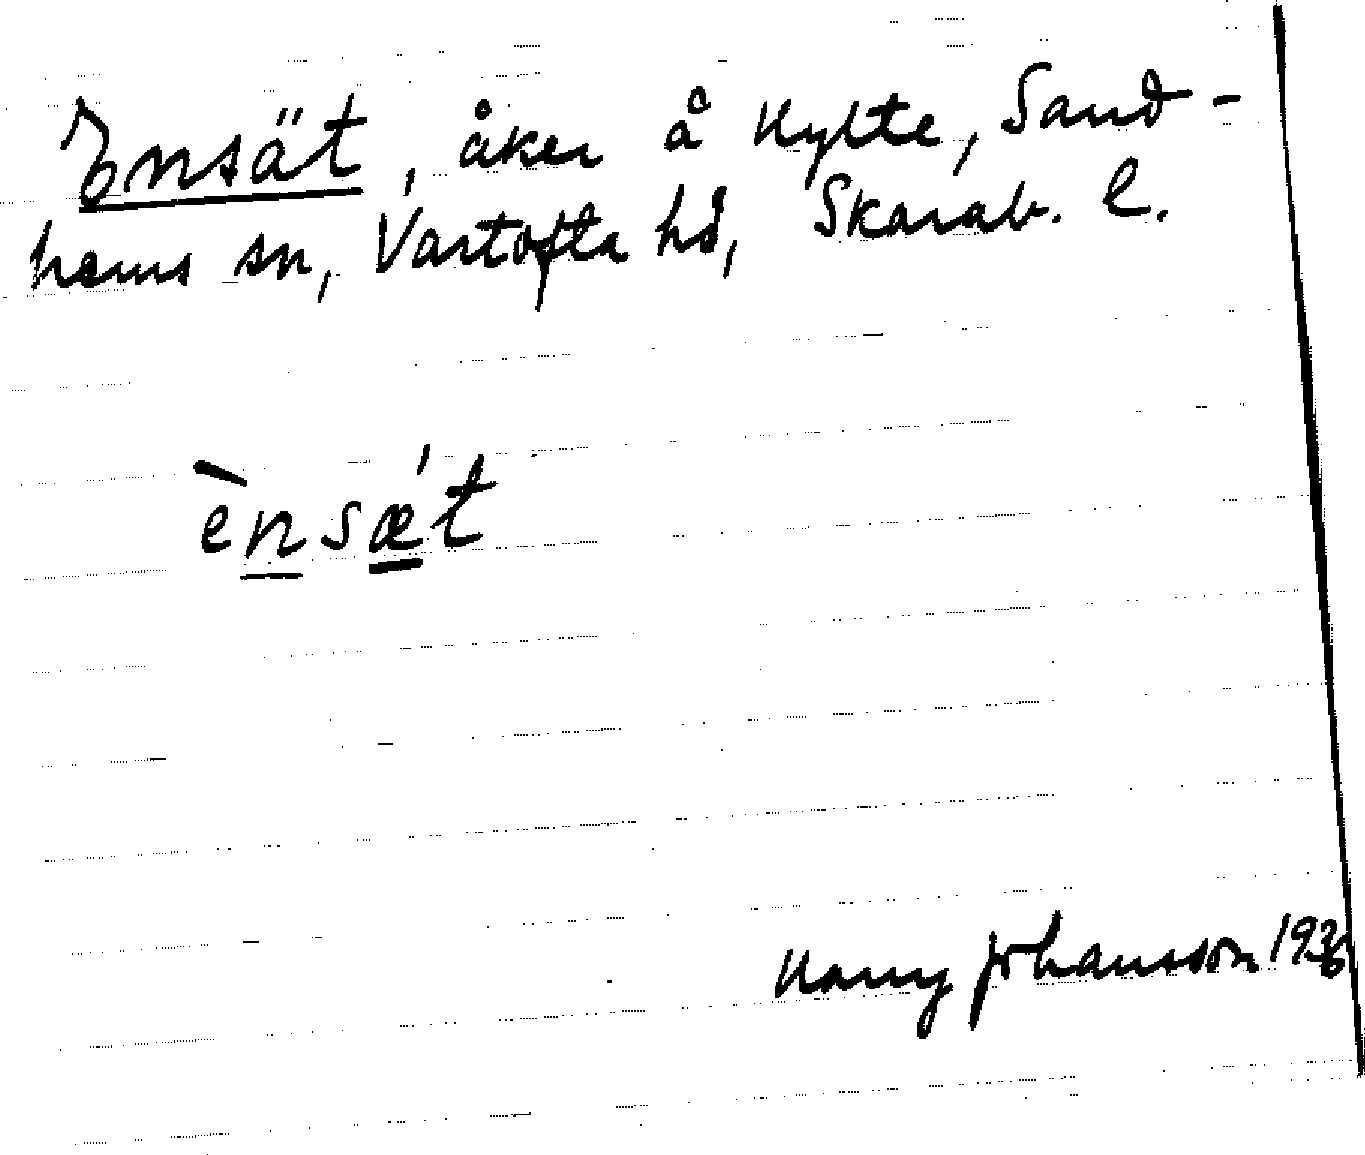 Ensät, åker å Hylte, Sand-
hems sn, Vartofta hd, Skarab. l.
ènsǽt
Harry Johansson 1936